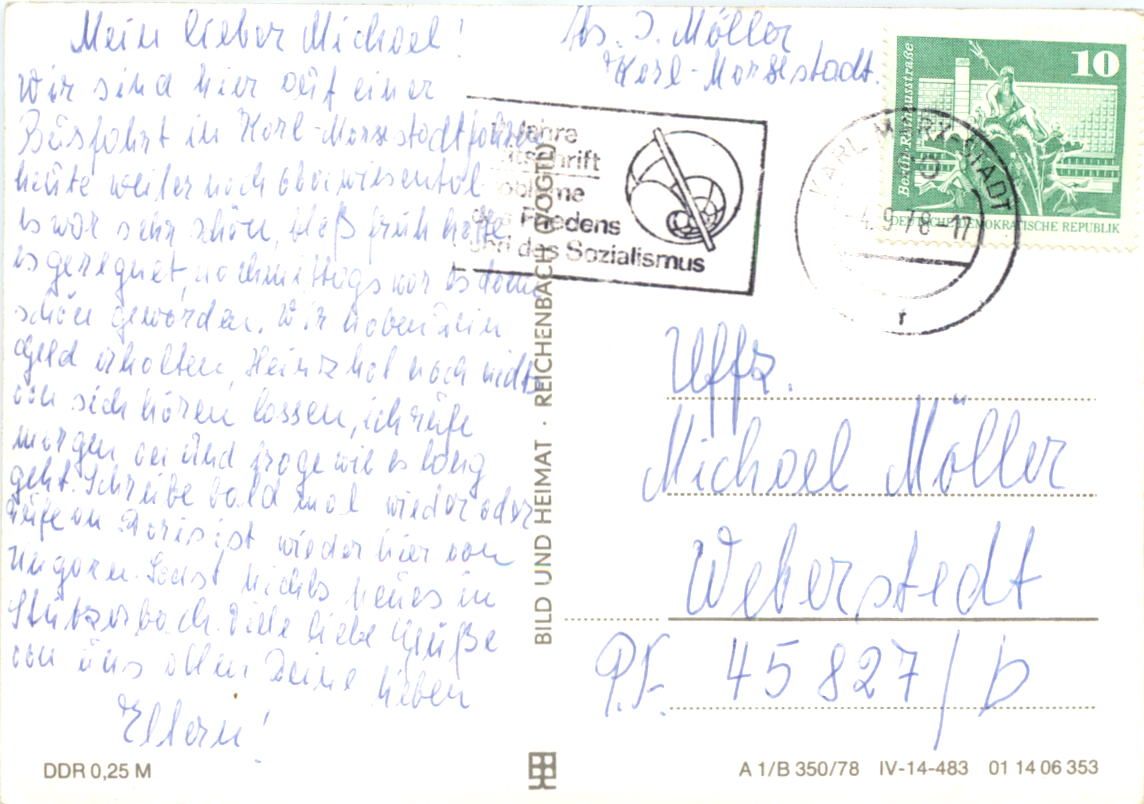 Mein lieber Michael!
Wir sind hier auf einer
Busfahrt in Karl-Marxstadt fahren
heute weiter nach Oberwiesental
es war sehr schön, bloß früh hatte
es geregnet, nachmittags war es dann
schön geworden. Wir haben Dein
Geld erhalten, Heinz hat noch nichts
von sich hören lassen, ich rufe
morgen an und frage wie es lang
geht. Schreibe bald mal wieder oder
rufe an Doris ist wieder hier von
Ungarn. Sonst nichts neues in
Stützerbach. Viele liebe Grüße
von uns allen Deine lieben
Eltern!
DDR 0,25 M
Abs. J. Möller
Karl-Marxstadt.
Jahre
Zeitschrift
Probleme
des Friedens
und des Sozialismus
KARL-MARX-STADT
4.9.78-17
f
10
Berlin-Rathausstraße
DEUTSCHE DEMOKRATISCHE REPUBLIK
BILD UND HEIMAT · REICHENBACH (VOGTL)
Uffz.
Michael Möller
Weberstedt
P.F. 45 827/D
A 1/B 350/78 IV-14-483 01 14 06 353